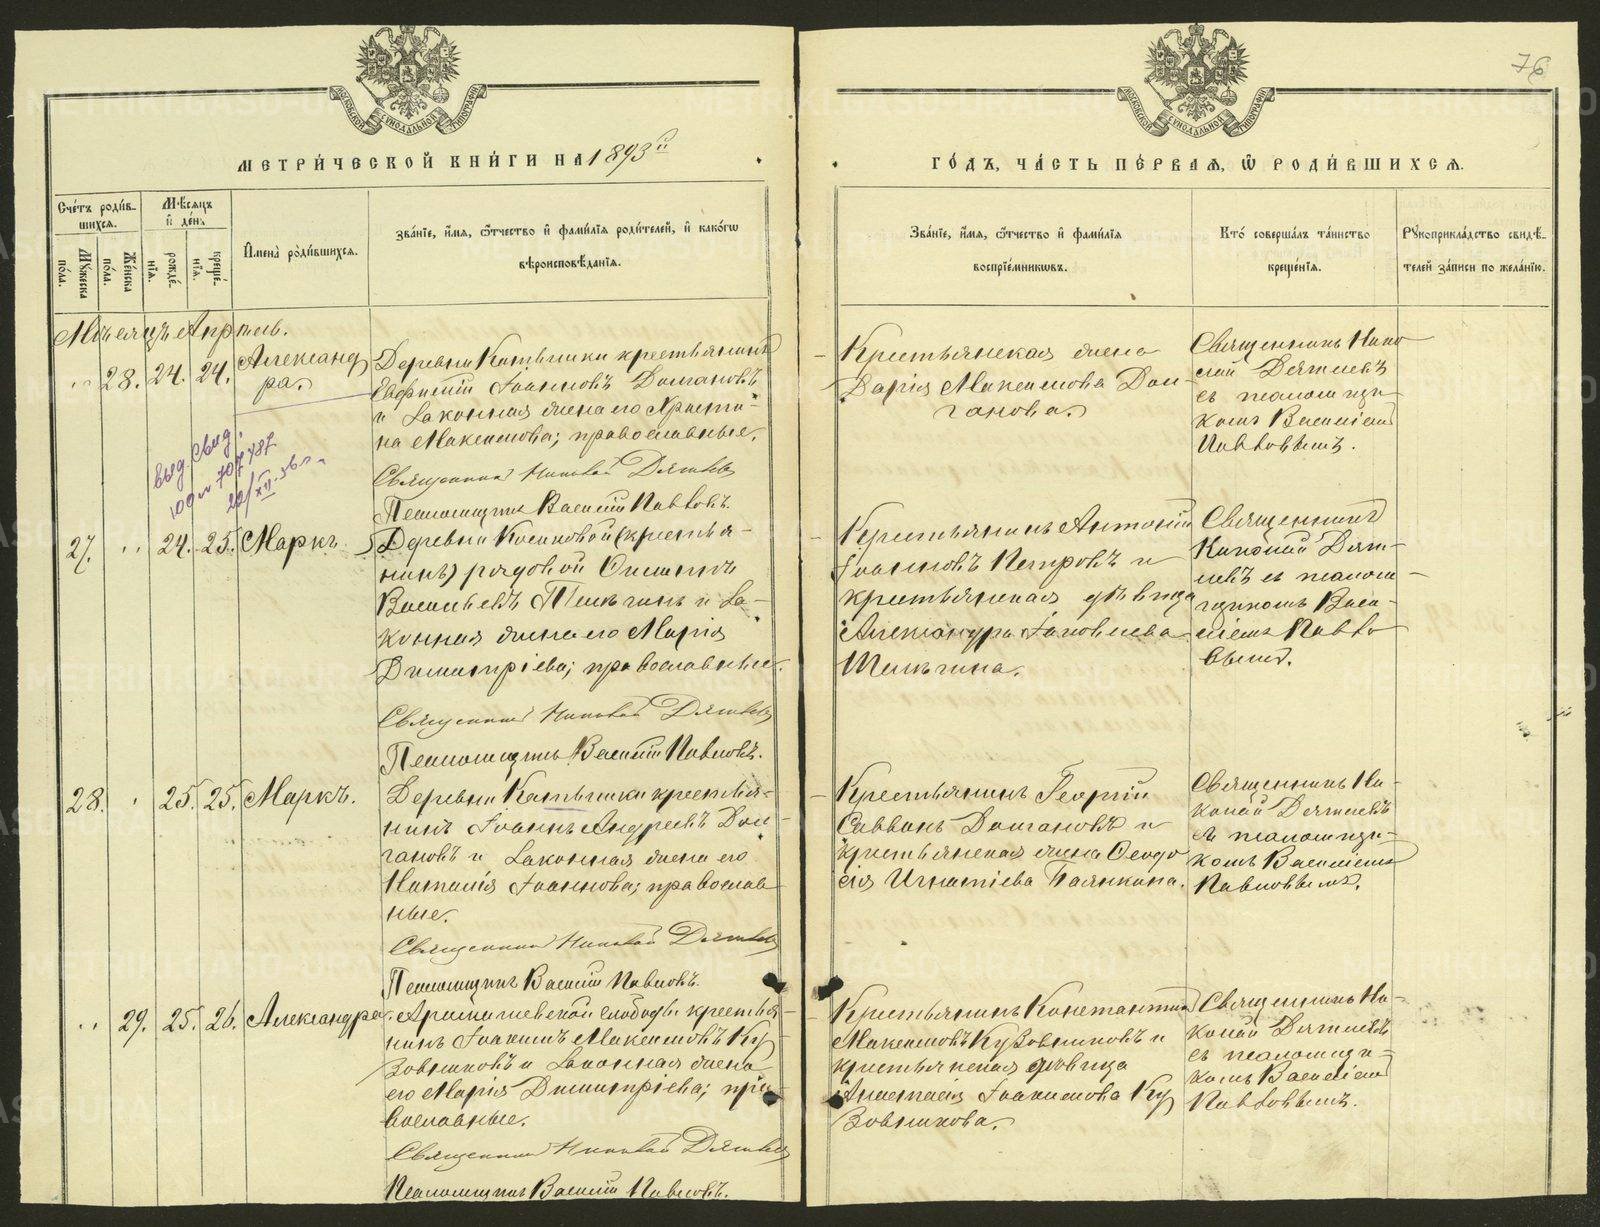 76
МОСКОВСКОЙ СѴНОДАЛЬНОЙ ТИПОГРАФІИ
МОСКОВСКОЙ СѴНОДАЛЬНОЙ ТИПОГРАФІИ
МЕТРИ́ЧЕСКОЙ КНИ́ГИ НА 1893й
ГО́ДЪ, ЧА́СТЬ ПЕ́РВАЯ, Ѿ РОДИ́ВШИХСЯ.
Сче́тъ роди́в-
шихся.
Мꙋжеска
по́ла.
Же́нска
по́ла.
Мѣ́сяцъ
и҆ де́нь
рожде́-
нїя.
креще́-
нїя.
И҆мена̀ роди́вшихся.
Зва́нїе, и҆́мя, ѻ҆́тчество и҆ фами́лїя роди́телей, и҆ како́гѡ
вѣроисповѣ́данїя.
Зва́нїе, и҆́мя, ѻ҆́тчество и҆ фами́лїя
воспрїе́мникѡвъ.
Кто̀ соверша́лъ та́инство
креще́нїя.
Рꙋкоприкла́дство свидѣ́-
телей за́писи по жела́нїю.
Мѣсяцъ Апрѣль.
" 28. 24. 24. Александ
ра.
Деревни Катѣнки крестьянинъ
Евфимій Іоанновъ Долгановъ
и законная жена его Христи-
на Максимова; православные.
Священникъ Николай Дягилевъ
Псаломщикъ Василій Павловъ.
Крестьянская жена
Дарія Максимова Дол-
ганова.
Священникъ Нико
лай Дягилевъ
съ псаломщи-
комъ Василіемъ
Павловымъ.
Выд. Свид.
22/XII
27. " 24. 25. Маркъ.
Деревни Косиковой (крестья-
нинъ) рядовой
Васильевъ и за-
конная жена его Марія
Димитріева; православные.
Священникъ Николай Дягилевъ
Псаломщикъ Василій Павловъ.
Крестьянинъ Антоній
Іоанновъ Петровъ и
крестьянская дѣвица
Александра Іаковлева
Священникъ
Николай Дяги-
левъ съ псалом-
щикомъ Васи-
ліемъ Павло
вымъ.
28. " 25. 25. Маркъ.
Деревни Катѣнки крестья-
нинъ Іоаннъ Андреевъ Дол-
гановъ и законная жена его
Наталія Іоаннова; православ
ные.
Священникъ Николай Дягилевъ
Псаломщикъ Василій Павловъ.
Крестьянинъ Георгій
Саввинъ Долгановъ и
крестьянская жена Ѳеодо
сія Игнатіева
Священникъ Ни-
колай Дягилевъ
съ псаломщи-
комъ Василіемъ
Павловымъ.
" 29. 25. 26. Александра.
слободы крестья-
нинъ Іоакимъ Максимовъ Ку
зовниковъ и законная жена
его Марія Димитріева; пра
вославные.
Священникъ Николай Дягилевъ
Псаломщикъ Василій Павловъ.
Крестьянинъ Константинъ
Максимовъ Кузовниковъ и
крестьянская дѣвица
Анастасія Іоакимова Ку
зовникова.
Священникъ Ни-
колай Дягилевъ
съ псаломщи-
комъ Василіемъ
Павловымъ.